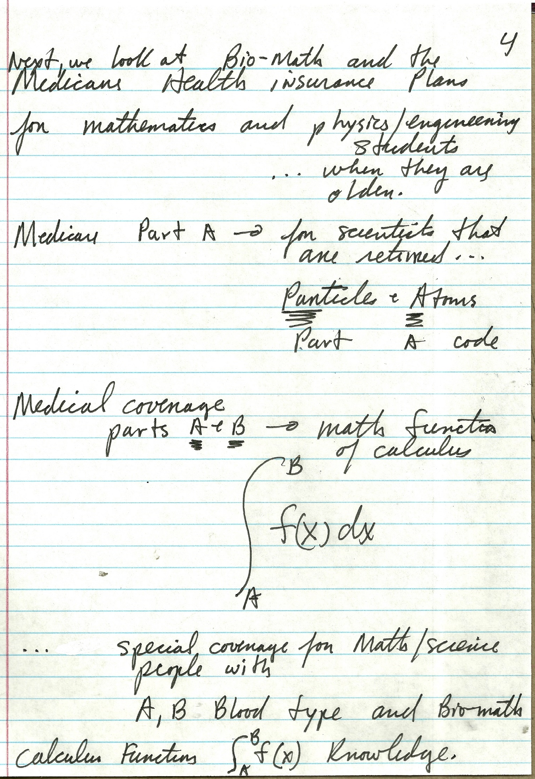 4
Next, we look at Bio-Math and the
Medicare Health insurance Plans
for mathematics and physics/engineering
students
... when they are
older.
Medicare Part A → for scientists that
are retired...
Particles & Atoms
Part A code
Medical coverage
parts A & B → math function
of calculus
∫_A^B f(x) dx
... special coverage for Math/science
people with
A, B Blood type and Bio-math
calculus Function ∫_A^B f(x) Knowledge.